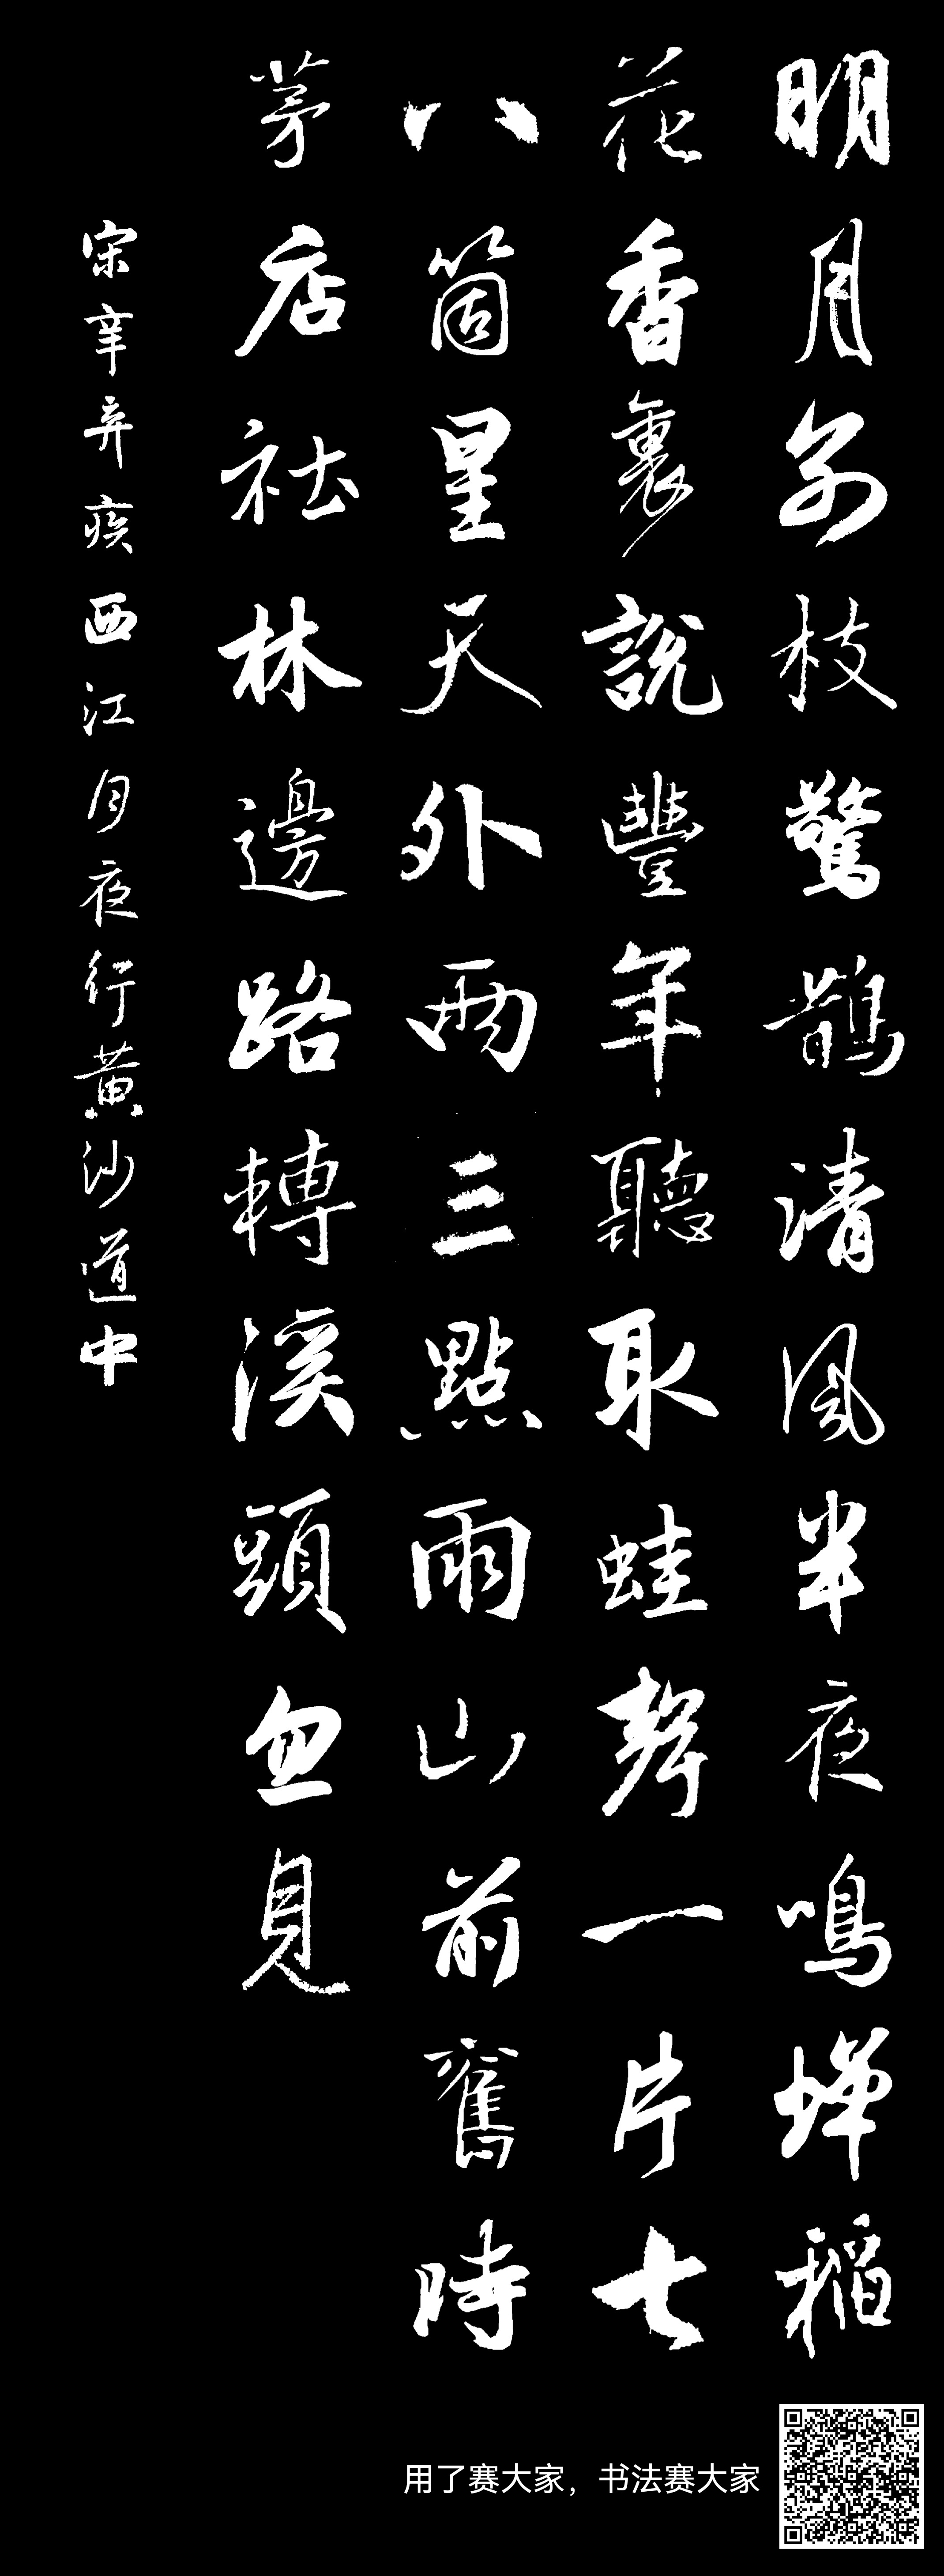 明月别枝驚鵲清風半夜鳴蟬稻
花香裏説豐年聽取蛙聲一片七
八箇星天外兩三點雨山前舊時
茅店社林邊路轉溪頭忽見
宋辛弃疾西江月夜行黄沙道中
用了赛大家，书法赛大家